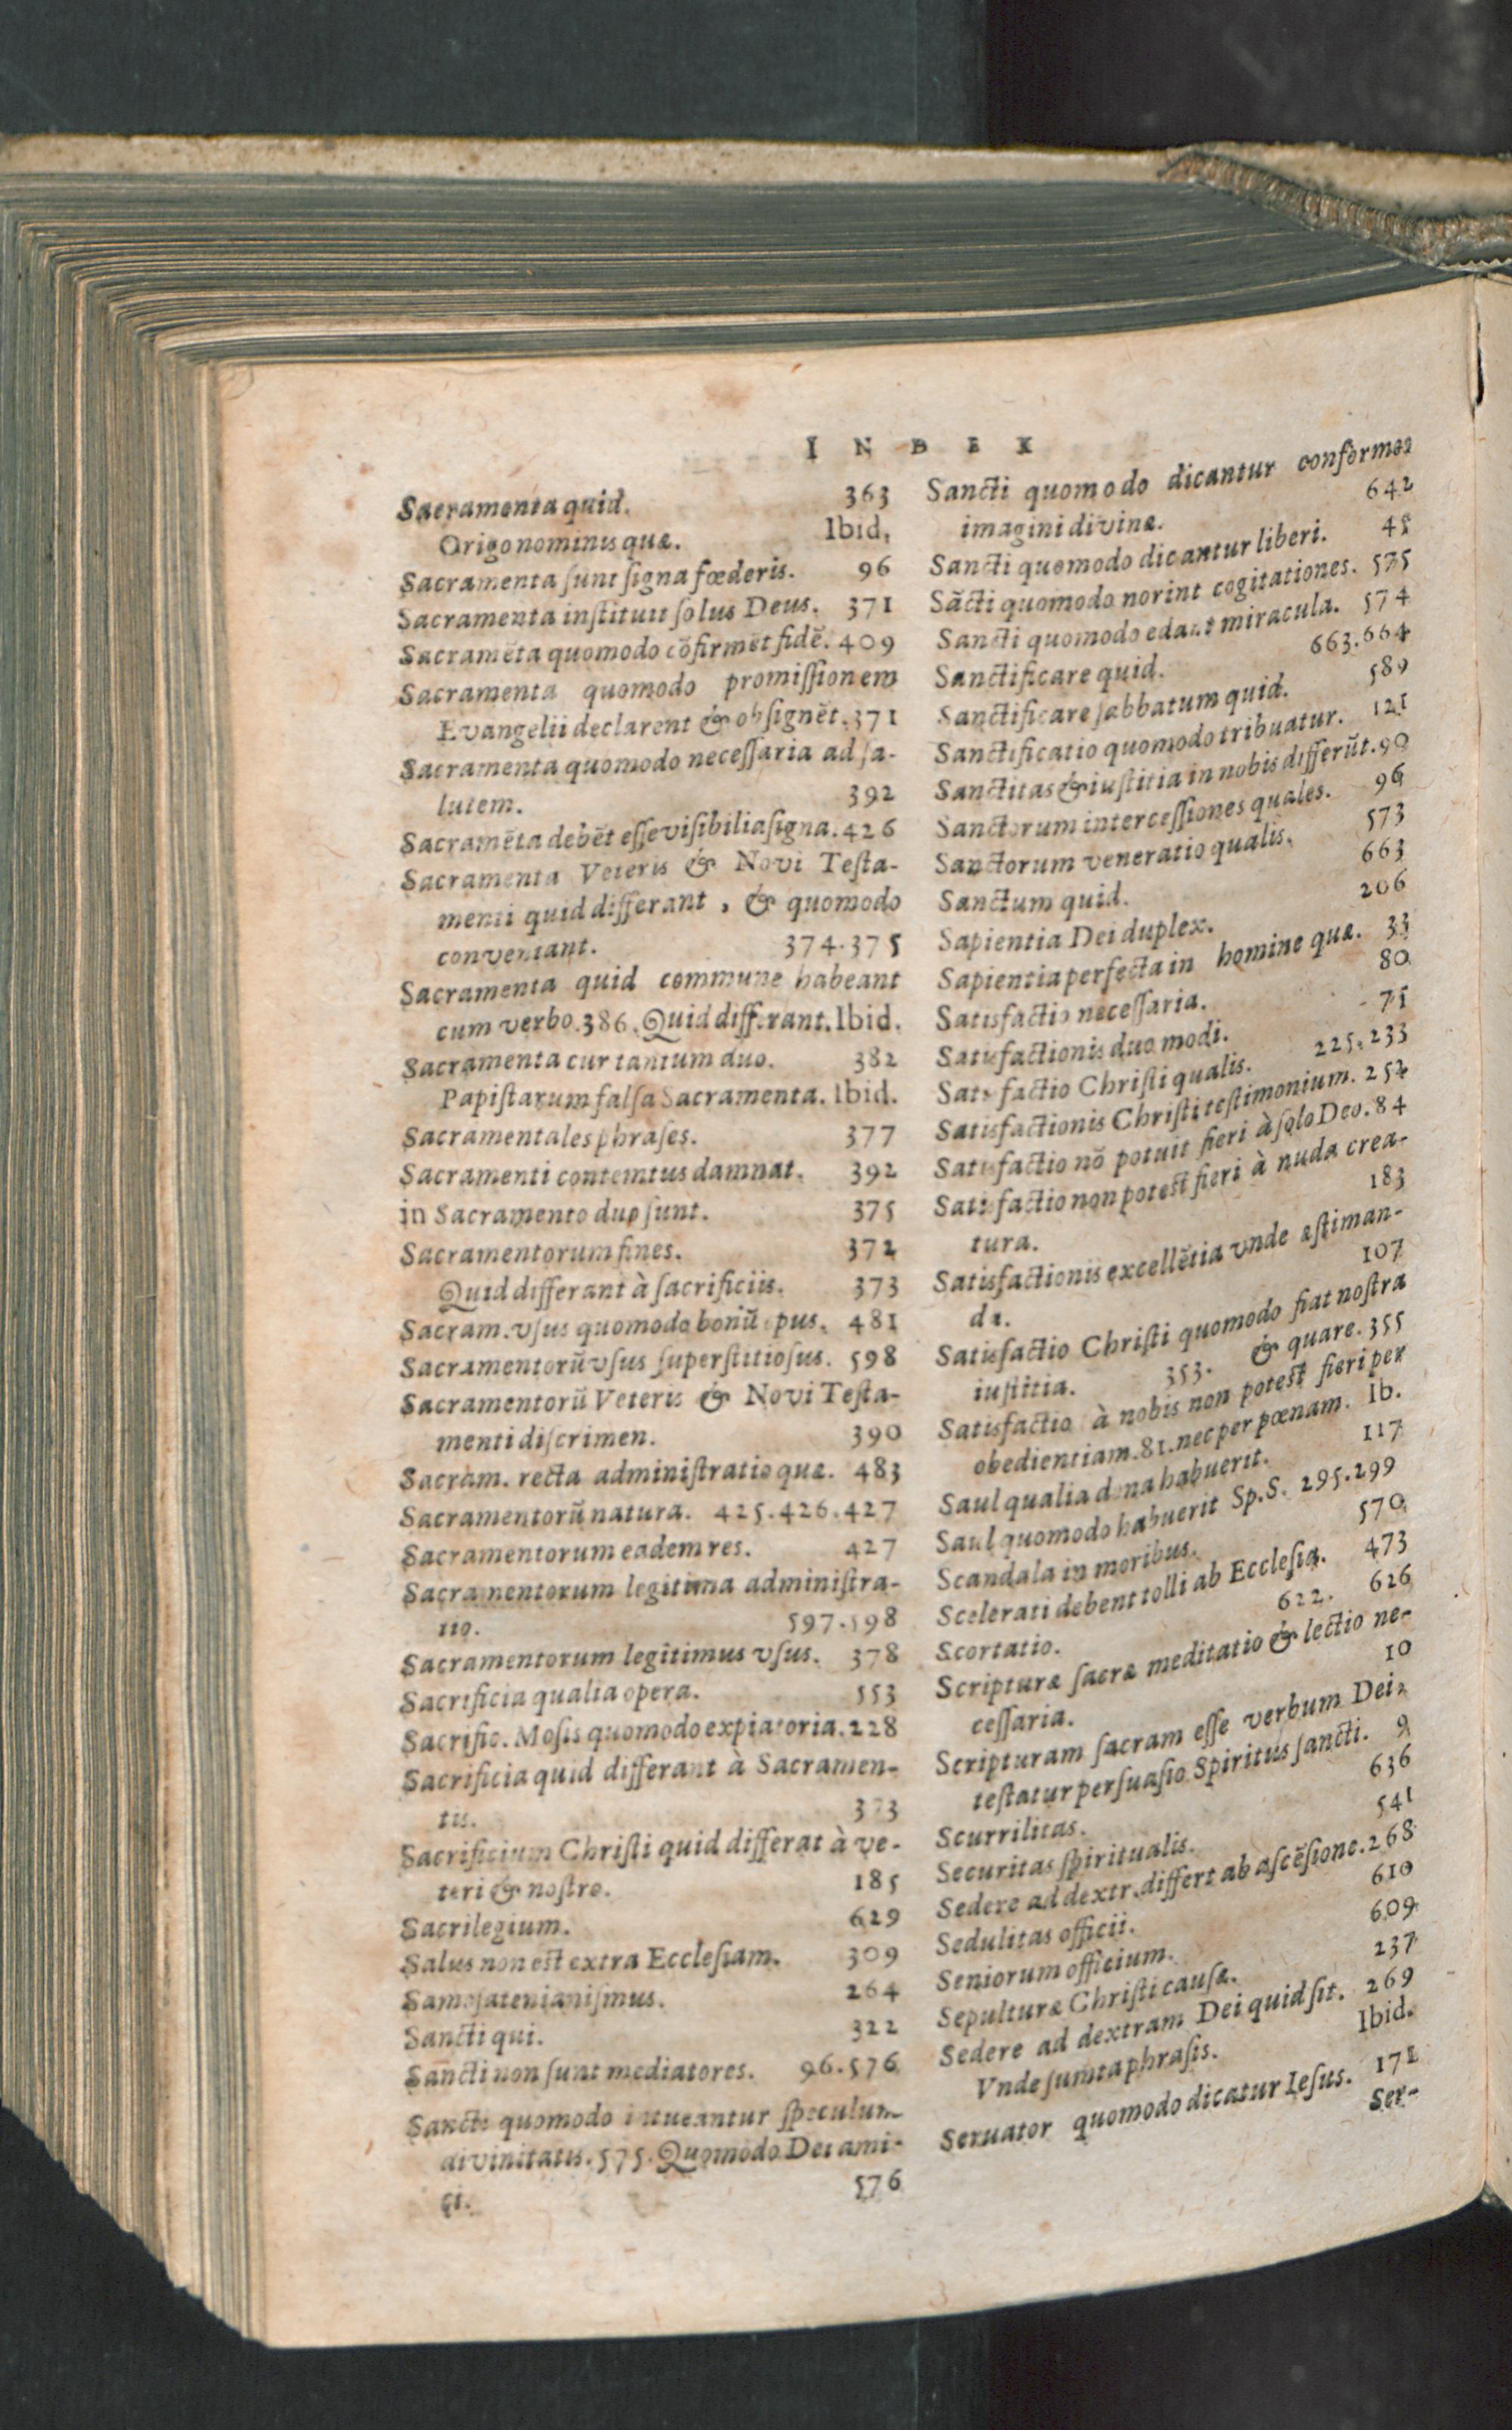 INDEX
Sacramenta quid. 363
Origo nominis quæ. Ibid.
Sacramenta ſunt ſigna fœderis. 96
Sacramenta inſtituit ſolus Deus. 371
Sacramẽta quomodo cõfirmẽt fidẽ. 409
Sacramenta quomodo promiſſionem
Evangelii declarent & obſignẽt. 371
Sacramenta quomodo neceſſaria ad ſa-
lutem. 392
Sacramẽta debẽt eſſe viſibilia ſigna. 426
Sacramenta Veteris & Novi Teſta-
menti quid differant, & quomodo
conveniant. 374.375
Sacramenta quid commune habeant
cum verbo. 386. Quid differant. Ibid.
Sacramenta cur tantum duo. 382
Papiſtarum falſa Sacramenta. Ibid.
Sacramentales phraſes. 377
Sacramenti contemtus damnat. 392
in Sacramento duo ſunt. 375
Sacramentorum fines. 372
Quid differant à ſacrificiis. 373
Sacram. vſus quomodo bonũ opus. 481
Sacramentorũ vſus ſuperſtitioſus. 598
Sacramentorũ Veteris & Novi Teſta-
menti diſcrimen. 390
Sacram. recta adminiſtratio quæ. 483
Sacramentorũ natura. 425.426.427
Sacramentorum eadem res. 427
Sacramentorum legitima adminiſtra-
tio. 597.598
Sacramentorum legitimus vſus. 378
Sacrificia qualia opera. 553
Sacrific. Moſis quomodo expiatoria. 228
Sacrificia quid differant à Sacramen-
tis. 373
Sacrificium Chriſti quid differat à ve-
teri & noſtro. 185
Sacrilegium. 629
Salus non eſt extra Eccleſiam. 309
Samoſatenianiſmus. 264
Sancti qui. 322
Sancti non ſunt mediatores. 96.576
Sancti quomodo intueantur ſpeculum
divinitatis. 575. Quomodo Dei ami-
ci. 576
Sancti quomodo dicantur conformes
imagini divinæ. 642
Sancti quomodo dicantur liberi. 45
Sãcti quomodo norint cogitationes. 575
Sancti quomodo edant miracula. 574
Sanctificare quid. 663.664
Sanctificare ſabbatum quid. 589
Sanctificatio quomodo tribuatur. 121
Sanctitas & iuſtitia in nobis differũt. 90
Sanctorum interceſſiones quales. 96
Sanctorum veneratio qualis. 573
Sanctum quid. 663
Sapientia Dei duplex. 206
Sapientia perfecta in homine quæ. 33
Satisfactio neceſſaria. 80
Satisfactionis duo modi. 71
Satisfactio Chriſti qualis. 225.233
Satisfactionis Chriſti teſtimonium. 252
Satisfactio nõ potuit fieri à ſolo Deo. 84
Satisfactio non poteſt fieri à nuda crea-
tura. 183
Satisfactionis excellẽtia vnde æſtiman-
da. 107
Satisfactio Chriſti quomodo fiat noſtra
iuſtitia. 353. & quare. 355
Satisfactio à nobis non poteſt fieri per
obedientiam. 81. nec per pœnam. Ib.
Saul qualia dona habuerit. 117
Saul quomodo habuerit Sp. S. 295.299
Scandala in moribus. 570
Scelerati debent tolli ab Eccleſia. 473
Scortatio. 622. 626
Scripturæ ſacræ meditatio & lectio ne-
ceſſaria. 10
Scripturam ſacram eſſe verbum Dei,
teſtatur perſuaſio Spiritus ſancti. 9
Scurrilitas. 636
Securitas ſpiritualis. 541
Sedere ad dextr. differt ab aſcẽſione. 268
Sedulitas officii. 610
Seniorum officium. 609
Sepulturæ Chriſti cauſæ. 237
Sedere ad dextram Dei quid ſit. 269
Vnde ſumta phraſis. Ibid.
Seruator quomodo dicatur Ieſus. 171
Ser-